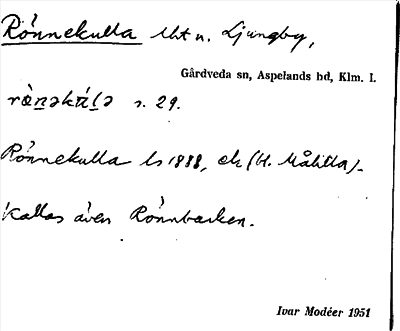 Rönnekulla lht u. Ljungby,
Gårdveda sn, Aspelands hd, Klm. l.
s. 29.
Rönnekulla ls 1888, ek (H. Målilla).
Kallas även Rönnbacken.
Ivar Modéer 1951